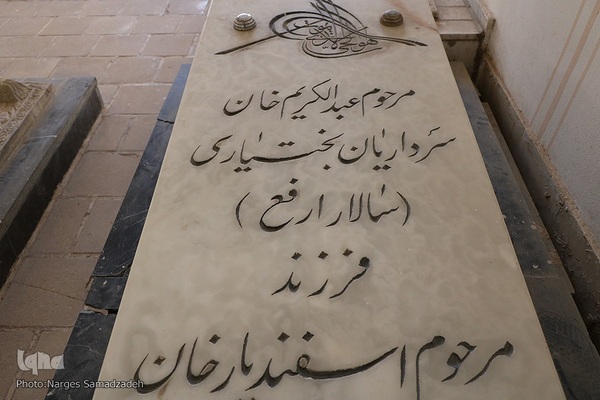 مرحوم عبدالکریم خان
سرداریان بختیاری
(سالار ارفع)
فرزند
مرحوم اسفندیار خان
iqna
Photo:Narges Samadzadeh